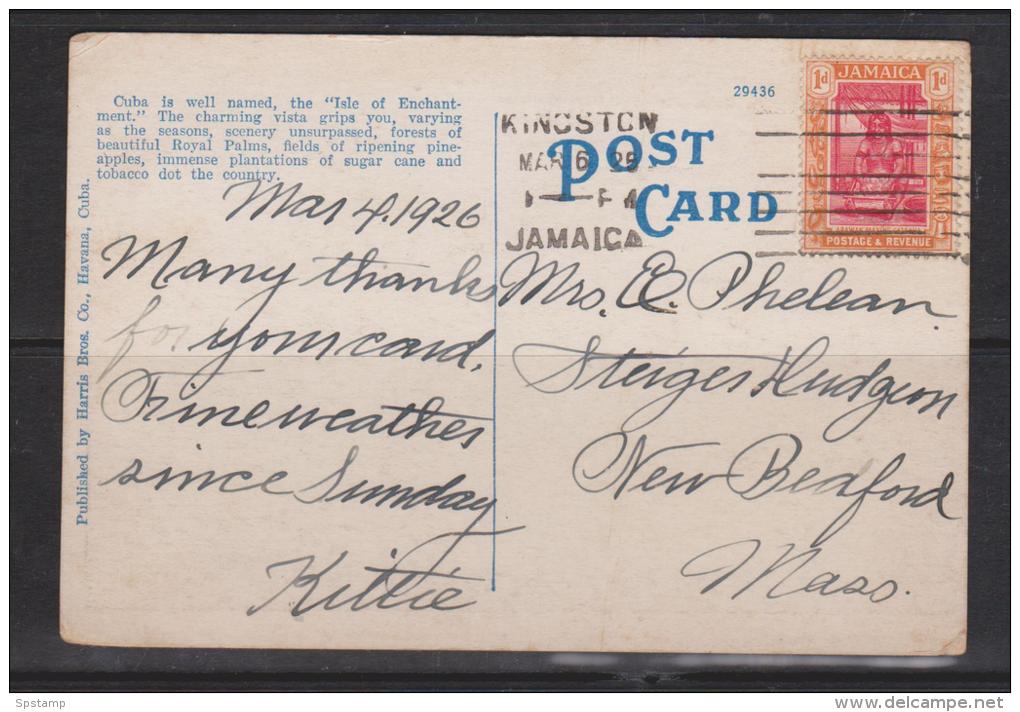 Cuba is well named, the "Isle of Enchant-
ment." The charming vista grips you, varying
as the seasons, scenery unsurpassed, forests of
beautiful Royal Palms, fields of ripening pine-
apples, immense plantations of sugar cane and
tobacco dot the country.
Published by Harris Bros. Co., Havana, Cuba.
Mar 4. 1926
Many thanks
for your card.
Fine weather
since Sunday
Kittie
29436
POST
CARD
KINGSTON
MAR 6
JAMAICA
1d JAMAICA 1d
POSTAGE & REVENUE
Mrs. E. Phelean.
Steiger Hudgeon
New Bedford
Mass.
Spstamp
delcampe.net